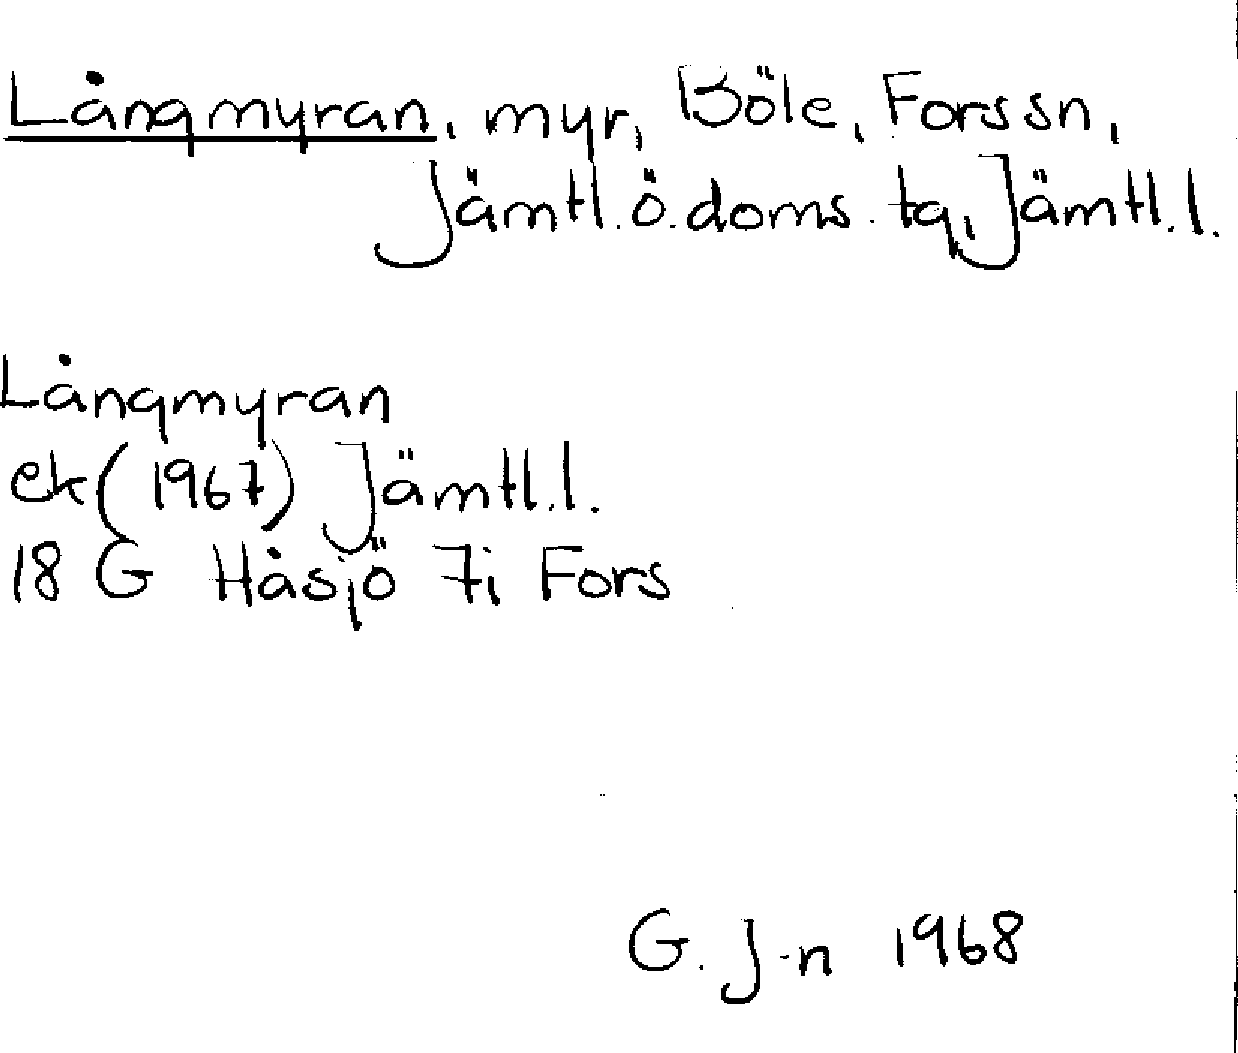 Långmyran, myr, Böle, Fors sn,
Jämtl.ö.doms.tg, Jämtl.l.
Långmyran
ek(1967) Jämtl.l.
18 G Håsjö 7i Fors
G. J-n 1968